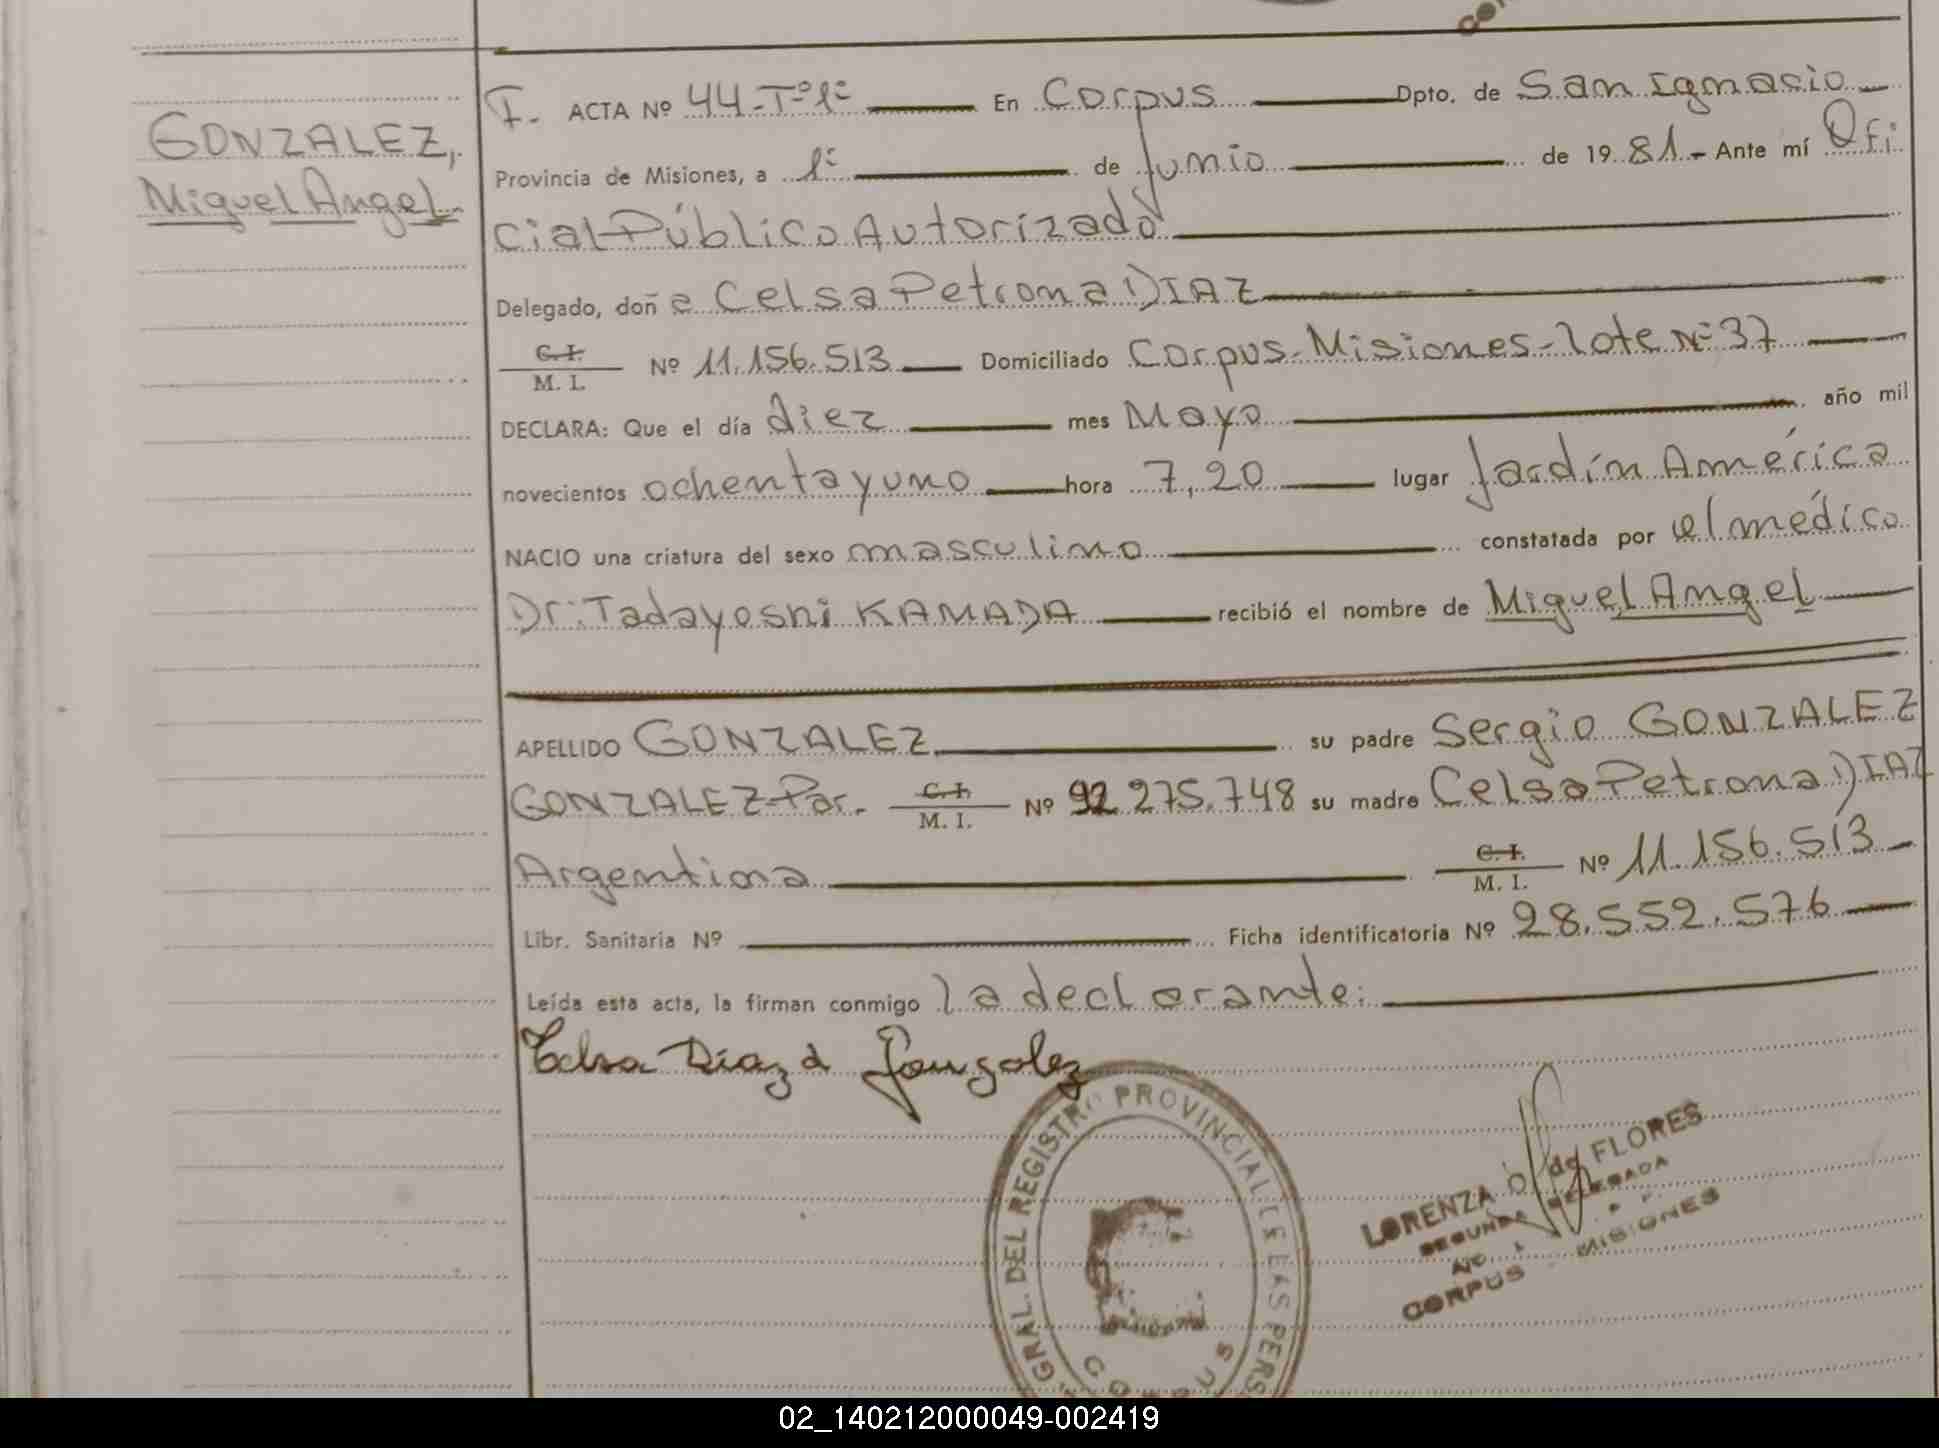 GONZALEZ,
Miguel Angel
F. ACTA Nº 44-Tº1º En Corpus Dpto. de San Ignacio
Provincia de Misiones, a 1º de Junio de 1981.- Ante mí Ofi
cial Público Autorizado
Delegado, doña Celsa Petrona DIAZ
C. I.
M. I. Nº 11.156.513 Domiciliado Corpus-Misiones-lote Nº 37
DECLARA: Que el día diez mes Mayo año mil
novecientos ochenta y uno hora 7,20 lugar Jardín América
NACIO una criatura del sexo masculino constatada por el médico
Dr: Tadayoshi KAMADA recibió el nombre de Miguel Angel
APELLIDO GONZALEZ su padre Sergio GONZALEZ
GONZALEZ-Par. C. I. M. I. Nº 92 275.748 su madre Celsa Petrona DIAZ
Argentina C. I. M. I. Nº 11.156.513
Libr. Sanitaria Nº Ficha identificatoria Nº 28.552.576
Leída esta acta, la firman conmigo la declarante:
Celsa Diaz d Gonzalez
GRAL. DEL REGISTRO PROVINCIAL DE LAS PERS
CORPUS
LORENZA O. de FLORES
SEGUNDA DELEGADA
CORPUS MISIONES
02_140212000049-002419